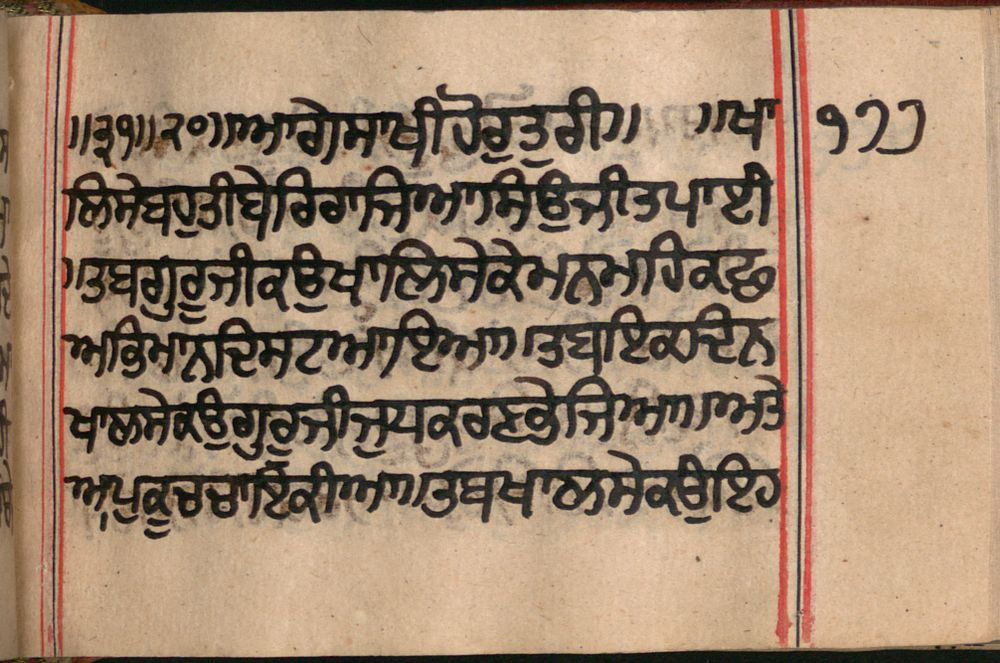 ॥੩੧॥੨੦॥ਆਗੇਸਾਖੀਹੋਰੁਤੁਰੀ॥ ॥ਖਾ ੧੭੭
ਲਿਸੇਬਹੁਤੀਬੇਰਿਰਾਜਿਆਸਿਉਜੀਤਪਾਈ
॥ਤਬਗੁਰੂਜੀਕਉਖਾਲਿਸੇਕੇਮਨਮਹਿਕਛੁ
ਅਭਿਮਾਨਦਿਸਟਆਇਆ॥ਤਬਇਕਦਿਨ
ਖਾਲਸੇਕਉਗੁਰੂਜੀਜੁਧਕਰਣਭੇਜਿਆ॥ਅਤੇ
ਆਪੁਕੂਚਚਾਇਕੀਆ॥ਤਬਖਾਲਸੇਕਉਇਹ